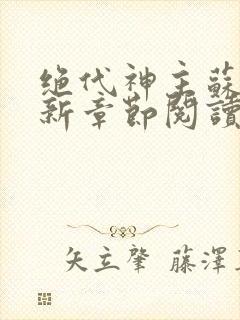 绝代神主蘇
新章節閱讀
矢立肇 藤澤